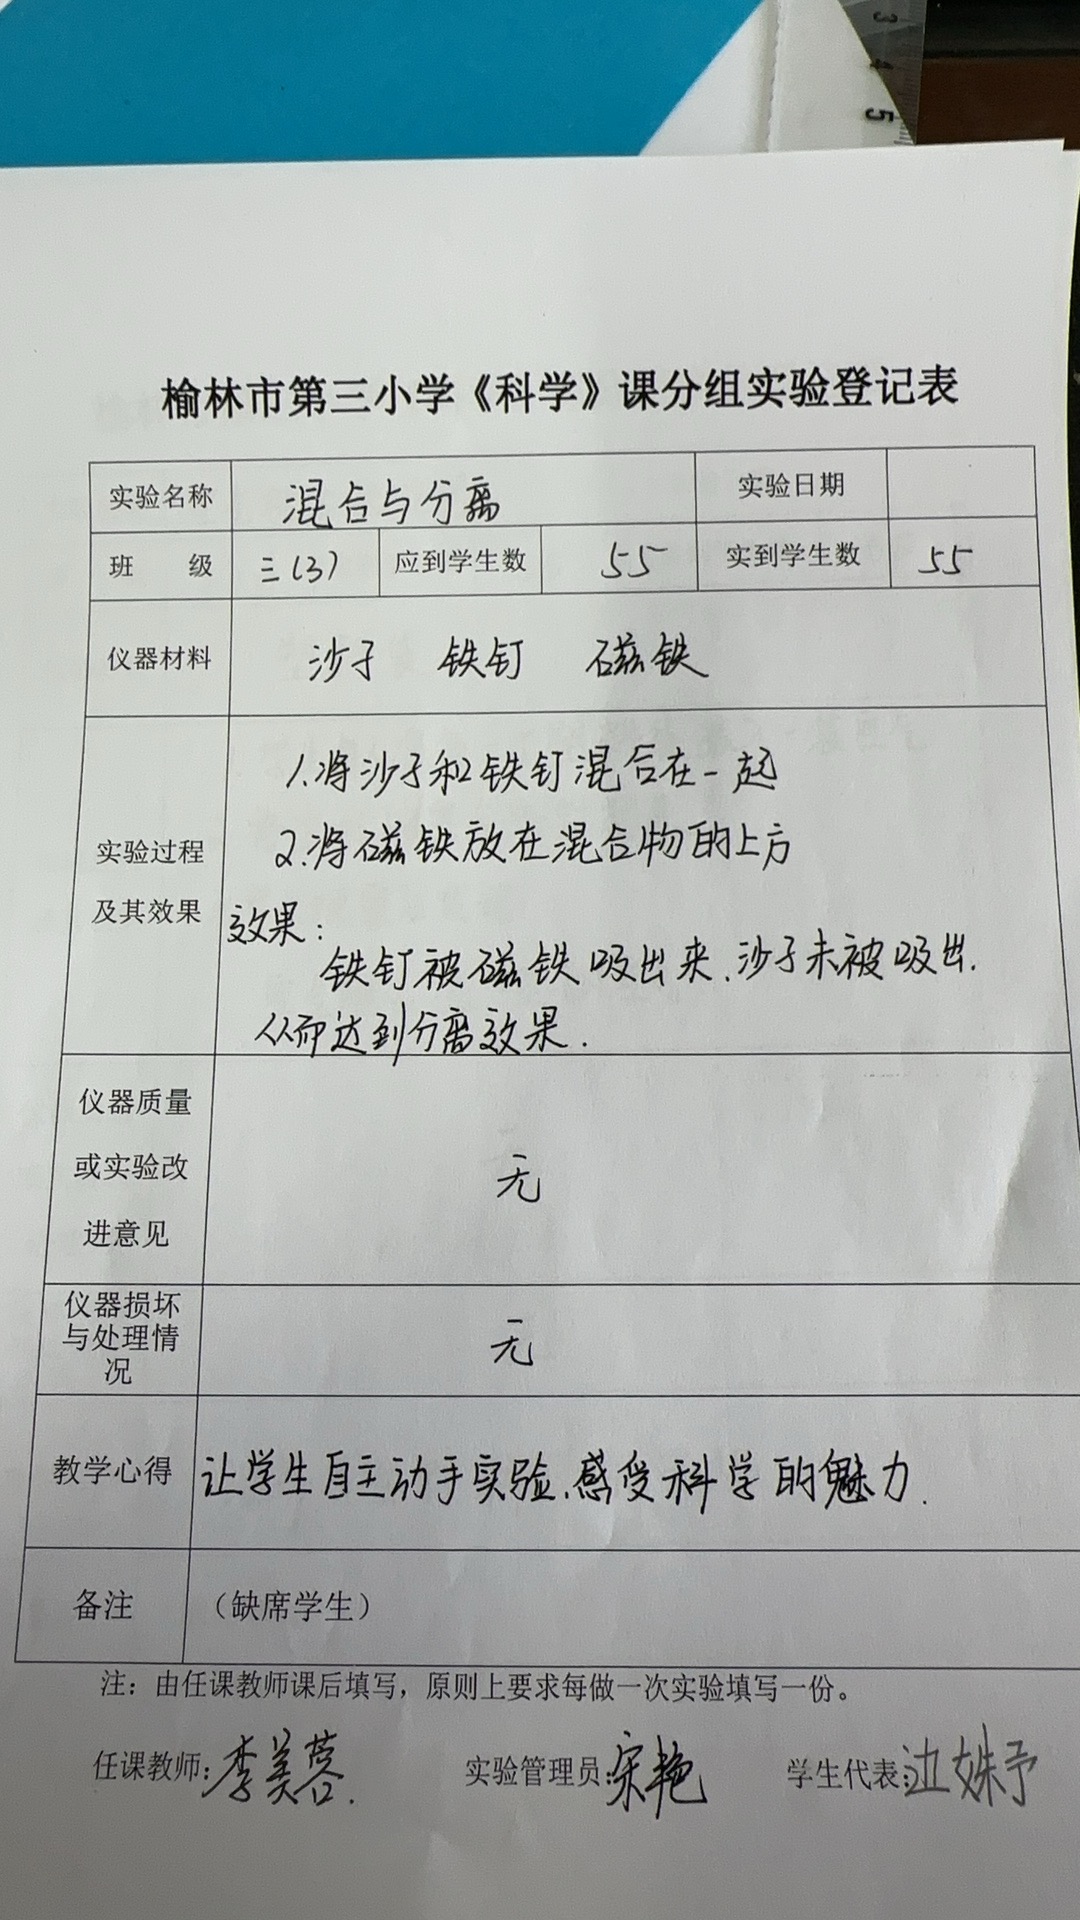 3
4
5
榆林市第三小学《科学》课分组实验登记表
实验名称 混合与分离 实验日期
班 级 三(3) 应到学生数 55 实到学生数 55
仪器材料 沙子 铁钉 磁铁
实验过程
及其效果
1.将沙子和铁钉混合在一起
2.将磁铁放在混合物的上方
效果:
铁钉被磁铁吸出来、沙子未被吸出.
从而达到分离效果.
仪器质量
或实验改
进意见
无
仪器损坏
与处理情
况
无
教学心得 让学生自主动手实验、感受科学的魅力.
备注 (缺席学生)
注：由任课教师课后填写，原则上要求每做一次实验填写一份。
任课教师:李美蓉. 实验管理员:宋艳 学生代表:边姝予